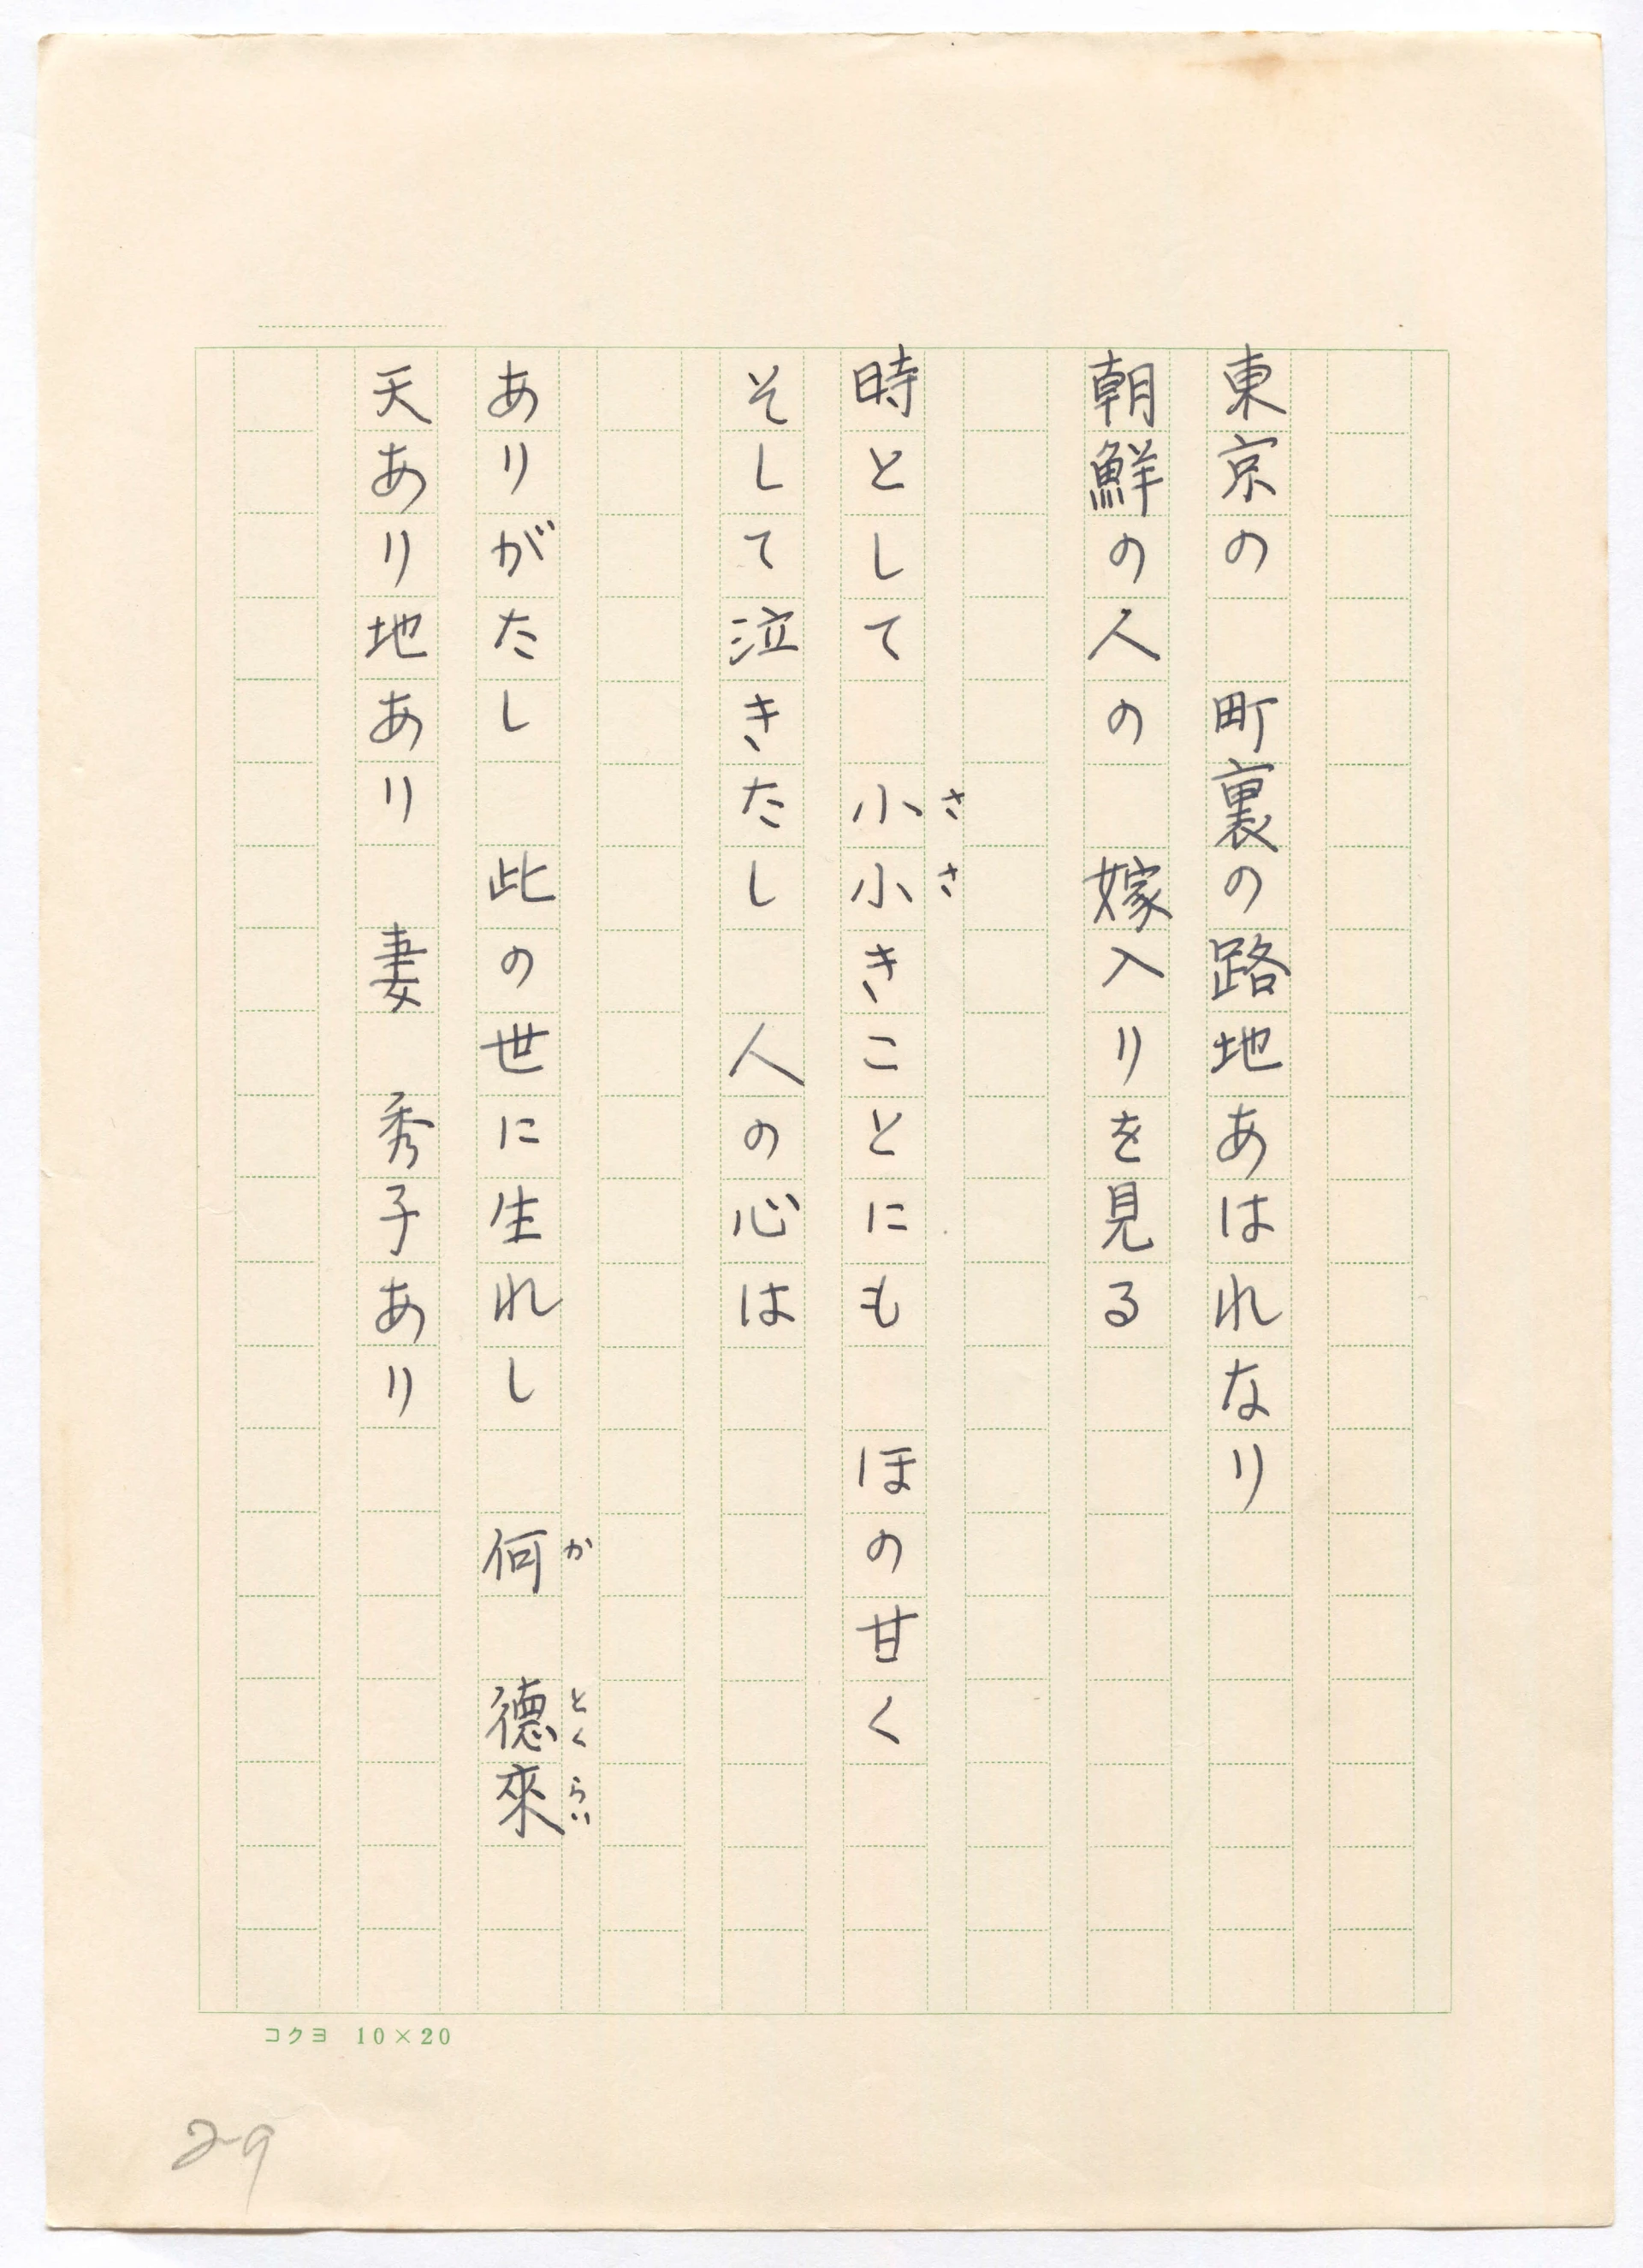 東京の　町裏の路地あはれなり
朝鮮の人の　嫁入りを見る
時として　小小きことにも　ほの甘く
ささ
そして泣きたし　人の心は
ありがたし　此の世に生れし　何　德來
か　とくらい
天あり地あり　妻　秀子あり
コクヨ 10×20
29